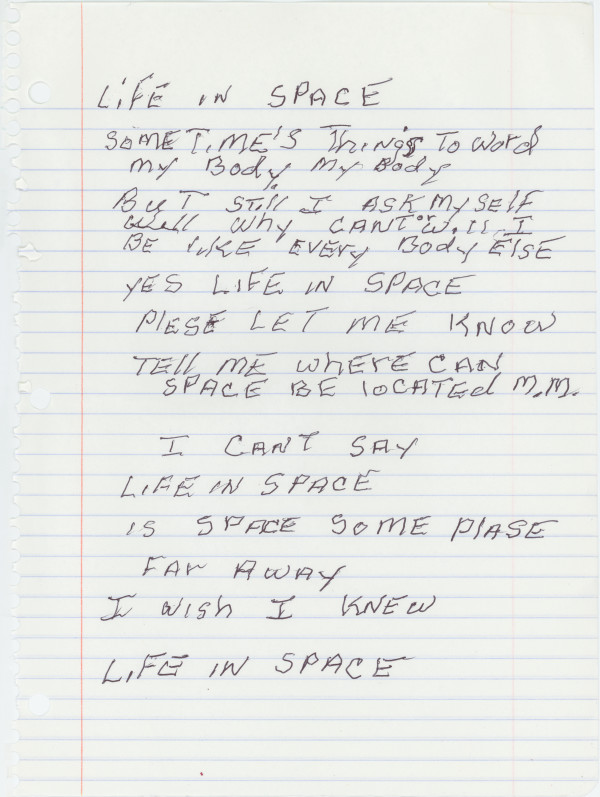 LIFE IN SPACE
SOMETIME'S Things TO WORD
MY BODY MY BODY
BUT Still I ASK MYSELF
Well Why CANT or Will I
BE LIKE EVERY BODY ELSE
YES LIFE IN SPACE
PlESE LET ME KNOW
TEll ME WHERE CAN
SPACE BE loCATEd M.M.
I CANT SAY
LIFE IN SPACE
IS SPACE SOME PlASE
FAR AWAY
I WISh I KNEW
LIFE IN SPACE